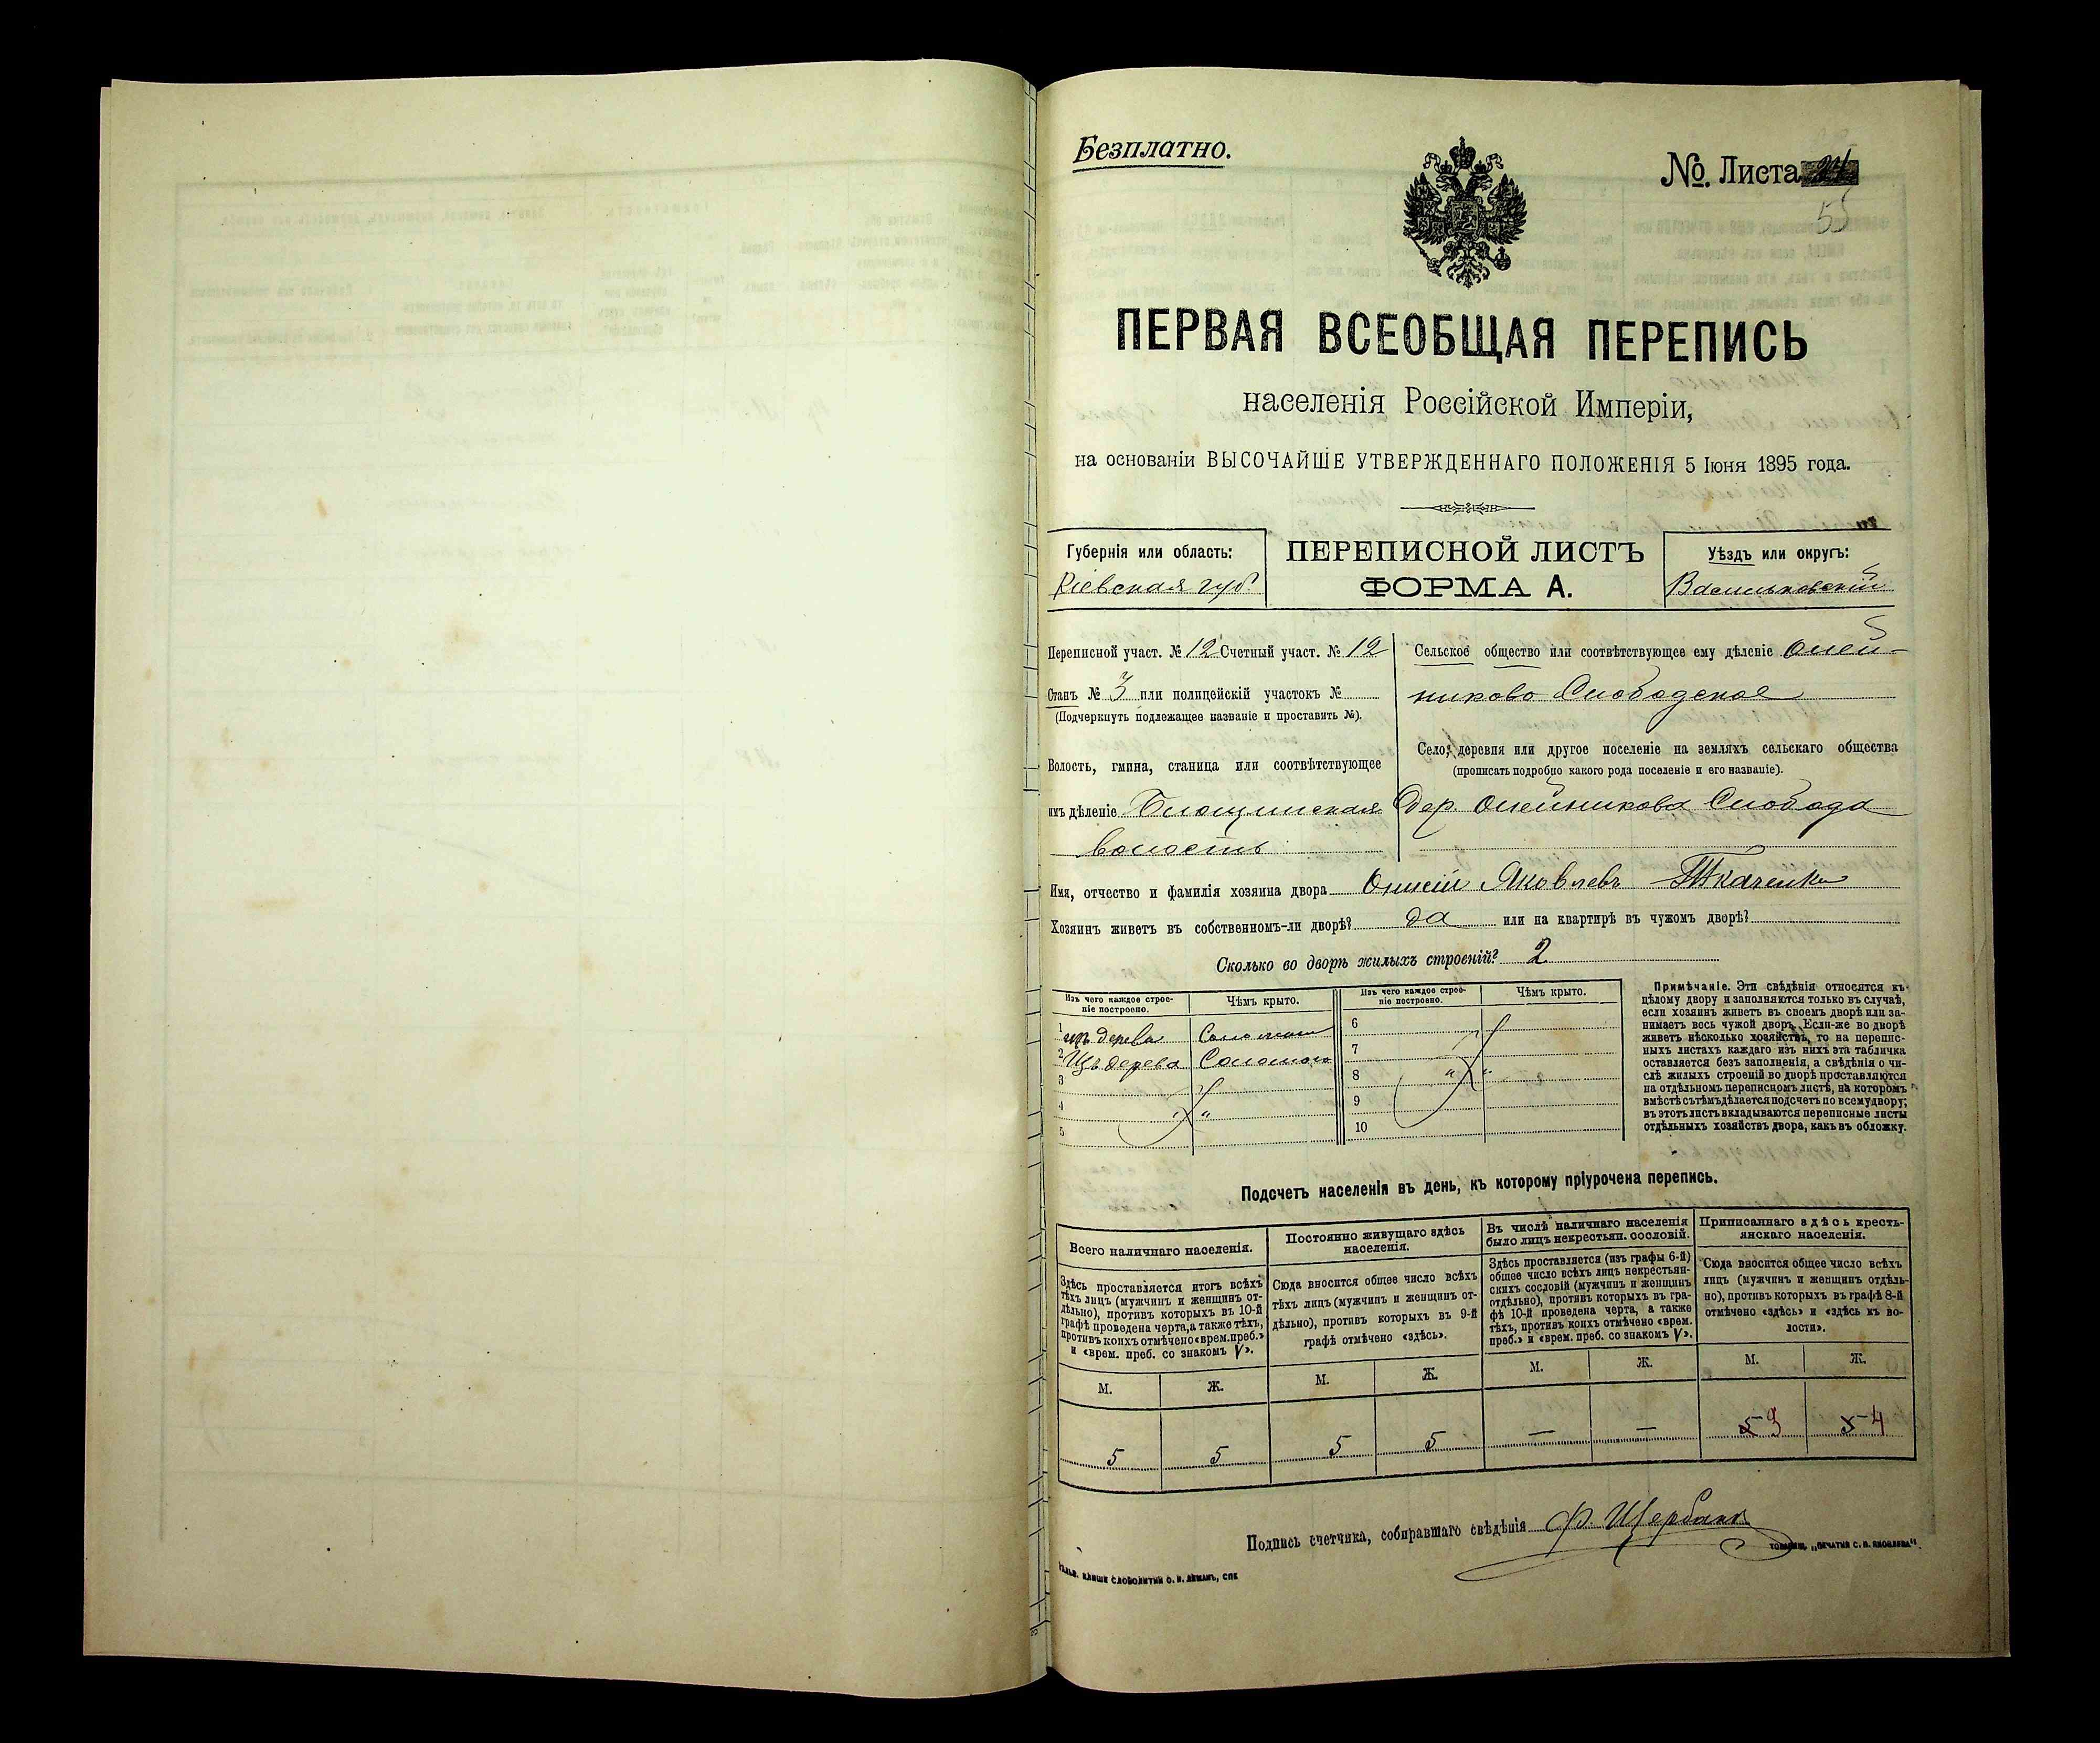 Безплатно.
№. Листа
55
ПЕРВАЯ ВСЕОБЩАЯ ПЕРЕПИСЬ
населенія Россійской Имперіи,
на основаніи ВЫСОЧАЙШЕ УТВЕРЖДЕННАГО ПОЛОЖЕНІЯ 5 Іюня 1895 года.
Губернія или область:
Кіевская губ.
ПЕРЕПИСНОЙ ЛИСТЪ
ФОРМА А.
Уѣздъ или округъ:
Васильковскій
Переписной участ. № 12 Счетный участ. № 12
Станъ № 3 или полицейскій участокъ №
(Подчеркнуть подлежащее названіе и проставить №).
Волость, гмина, станица или соотвѣтствующее
имъ дѣленіе Блощинская
волость
Сельское общество или соотвѣтствующее ему дѣленіе Олей-
никово Слободское
Село, деревня или другое поселеніе на земляхъ сельскаго общества
(прописать подробно какого рода поселеніе и его названіе).
Дер. Олейникова Слобода
Имя, отчество и фамилія хозяина двора Онисій Яковлевъ Ткаченко
Хозяинъ живетъ въ собственномъ-ли дворѣ? да или на квартирѣ въ чужомъ дворѣ?
Сколько во дворѣ жилыхъ строеній? 2
Изъ чего каждое строе-
ніе построено.
Чѣмъ крыто.
1 изъ дерева Соломою
2 Изъ дерева Соломою
3
4 " "
5
Изъ чего каждое строе-
ніе построено.
Чѣмъ крыто.
6
7
8 " "
9
10
Примѣчаніе. Эти свѣдѣнія относятся къ
цѣлому двору и заполняются только въ случаѣ,
если хозяинъ живетъ въ своемъ дворѣ или за-
нимаетъ весь чужой дворъ. Если-же во дворѣ
живетъ нѣсколько хозяйствъ, то на перепис-
ныхъ листахъ каждаго изъ нихъ эта табличка
оставляется безъ заполненія, а свѣдѣнія о чи-
слѣ жилыхъ строеній во дворѣ проставляются
на отдѣльномъ переписномъ листѣ, на которомъ
вмѣстѣ съ тѣмъ дѣлается подсчетъ по всему двору;
въ этотъ листъ вкладываются переписные листы
отдѣльныхъ хозяйствъ двора, какъ въ обложку.
Подсчетъ населенія въ день, къ которому пріурочена перепись.
Всего наличнаго населенія.
Здѣсь проставляется итогъ всѣхъ
тѣхъ лицъ (мужчинъ и женщинъ от-
дѣльно), противъ которыхъ въ 10-й
графѣ проведена черта, а также тѣхъ,
противъ коихъ отмѣчено «врем. преб.»
и «врем. преб. со знакомъ V».
М. Ж.
5 5
Постоянно живущаго здѣсь
населенія.
Сюда вносится общее число всѣхъ
тѣхъ лицъ (мужчинъ и женщинъ от-
дѣльно), противъ которыхъ въ 9-й
графѣ отмѣчено «здѣсь».
М. Ж.
5 5
Въ числѣ наличнаго населенія
было лицъ некрестьян. сословій.
Здѣсь проставляется (изъ графы 6-й)
общее число всѣхъ лицъ некрестьян-
скихъ сословій (мужчинъ и женщинъ
отдѣльно), противъ которыхъ въ гра-
фѣ 10-й проведена черта, а также
тѣхъ, противъ коихъ отмѣчено «врем.
преб.» и «врем. преб. со знакомъ V».
М. Ж.
— —
Приписаннаго здѣсь кресть-
янскаго населенія.
Сюда вносится общее число всѣхъ
лицъ (мужчинъ и женщинъ отдѣль-
но), противъ которыхъ въ графѣ 8-й
отмѣчено «здѣсь» и «здѣсь къ во-
лости».
М. Ж.
5 5 4
Подпись счетчика, собиравшаго свѣдѣнія Ф. Щербакъ
ТОВАРИЩ. „ПЕЧАТНЯ С. П. ЯКОВЛЕВА“.
КЛИШЕ СЛОВОЛИТНИ О. И. ЛЕМАНЪ, СПБ